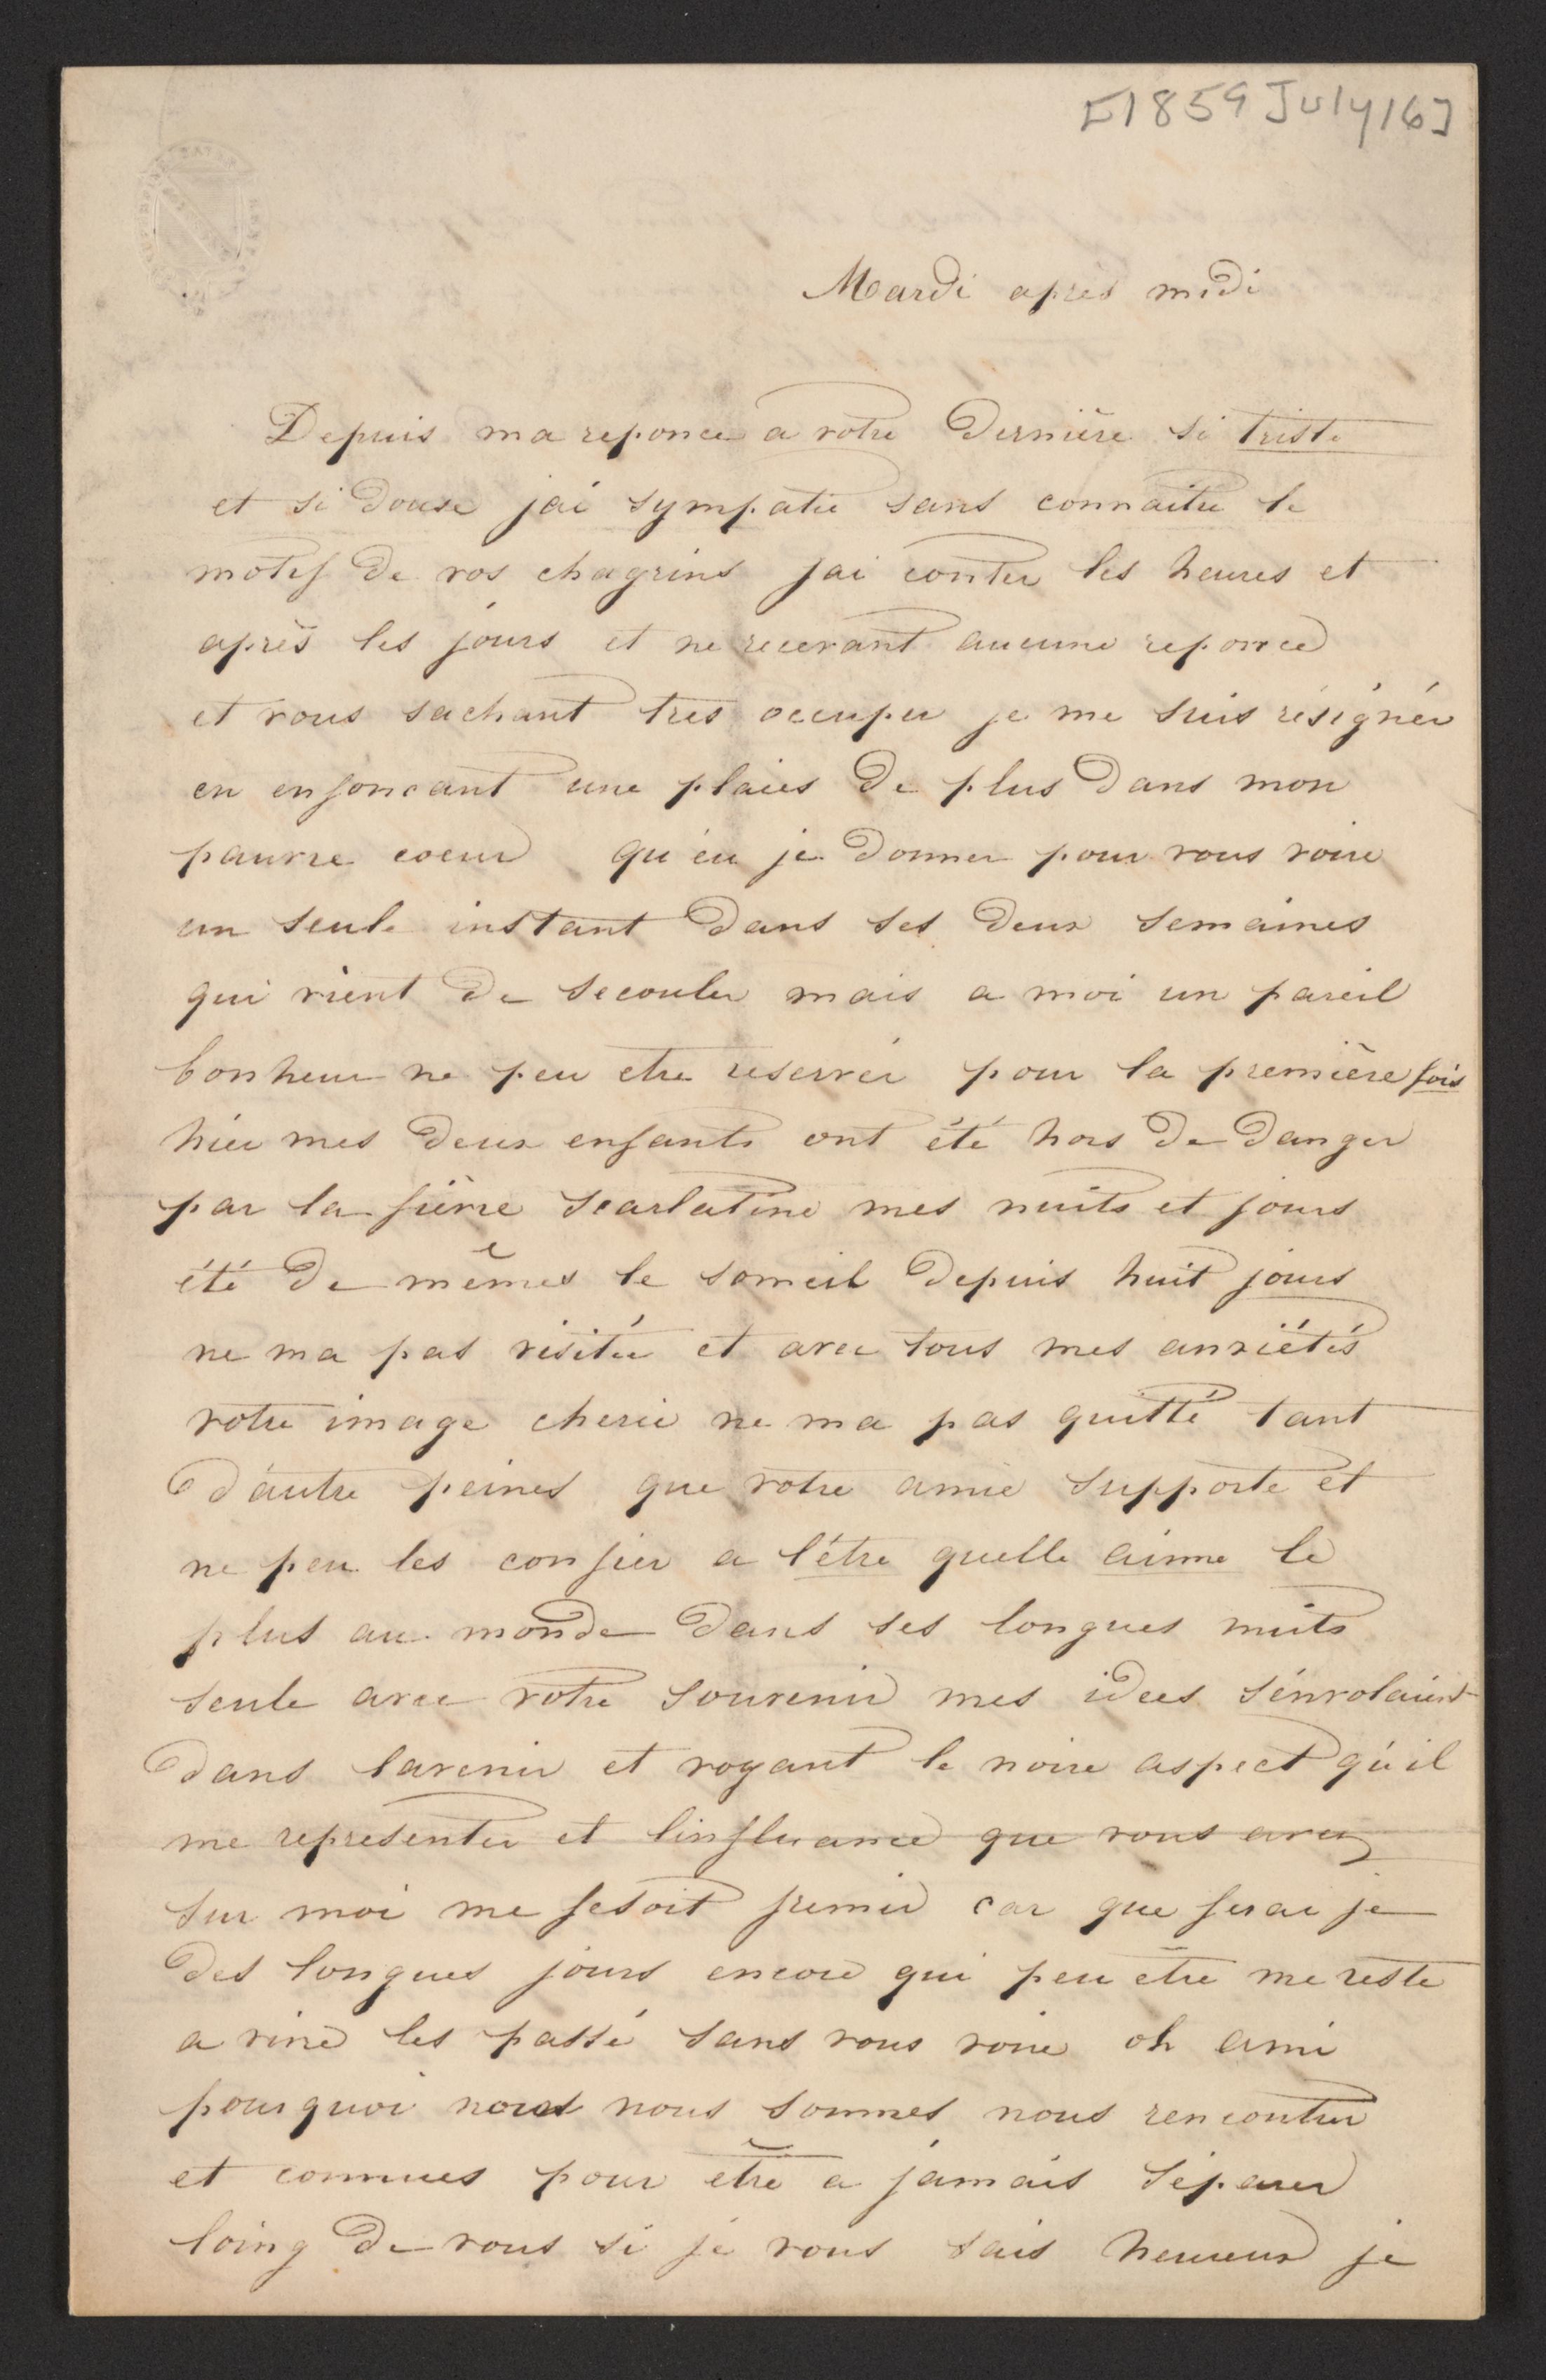 [1859 July 16]
Mardi après midi
Depuis ma reponce a votre dernière si triste
et si douse jái sympatie sans connaitre le
motif de vos chagrins jai conter les heures et
après les jours et ne recevant aucune reponce
et vous sachant tres occuper je me suis résignér
en enfoncant une plaies de plus dans mon
pauvre coeur qu'eu je donner pour vous voire
un seule instant dans ses deux semaines
qui vient de secouler mais a moi un pareil
bonheur ne peu etre reservér pour la première fois
hier mes deux enfants ont été hors de danger
par la fièvre scarlatine mes nuits et jours
été de mêmes le someil depuis huit jours
ne ma pas visitée et avec tous mes anxiétés
votre image cherie ne ma pas quitté tant
d'autre peines que votre amie supporte et
ne peu les confier a l'étre quelle aimme le
plus au monde dans ses longues nuits
seule avec votre souvenir mes idees s'envolaient
dans lavenir et voyant le noire aspect qu'il
me representer et linfluance que vous avez
sur moi me fesoit fremir car que ferai je
des longues jours encore qui peu etre me reste
a vivre les passé sans vous voire oh ami
pourquoi nous nous sommes nous rencontrer
et connues pour etre a jamais séparer
loing de vous si je vous sais heureux je